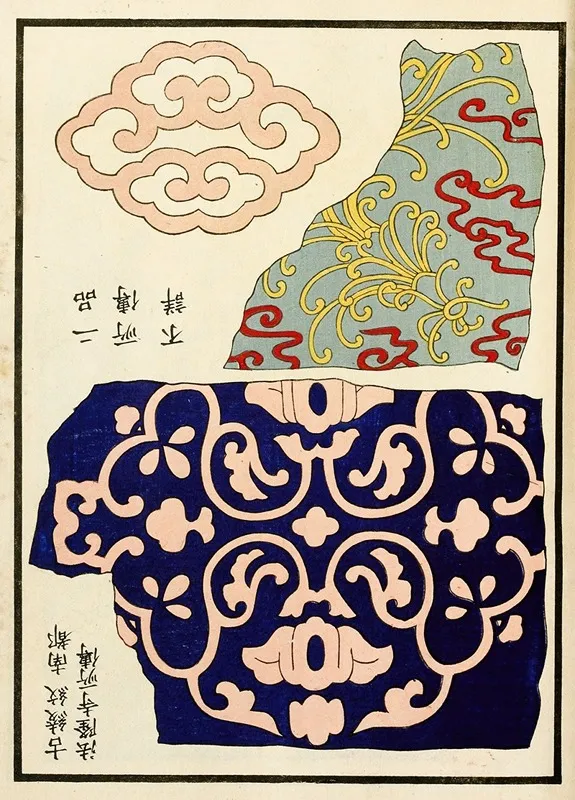 古綾紋南都
法隆寺所傳
二品
所傳
不詳